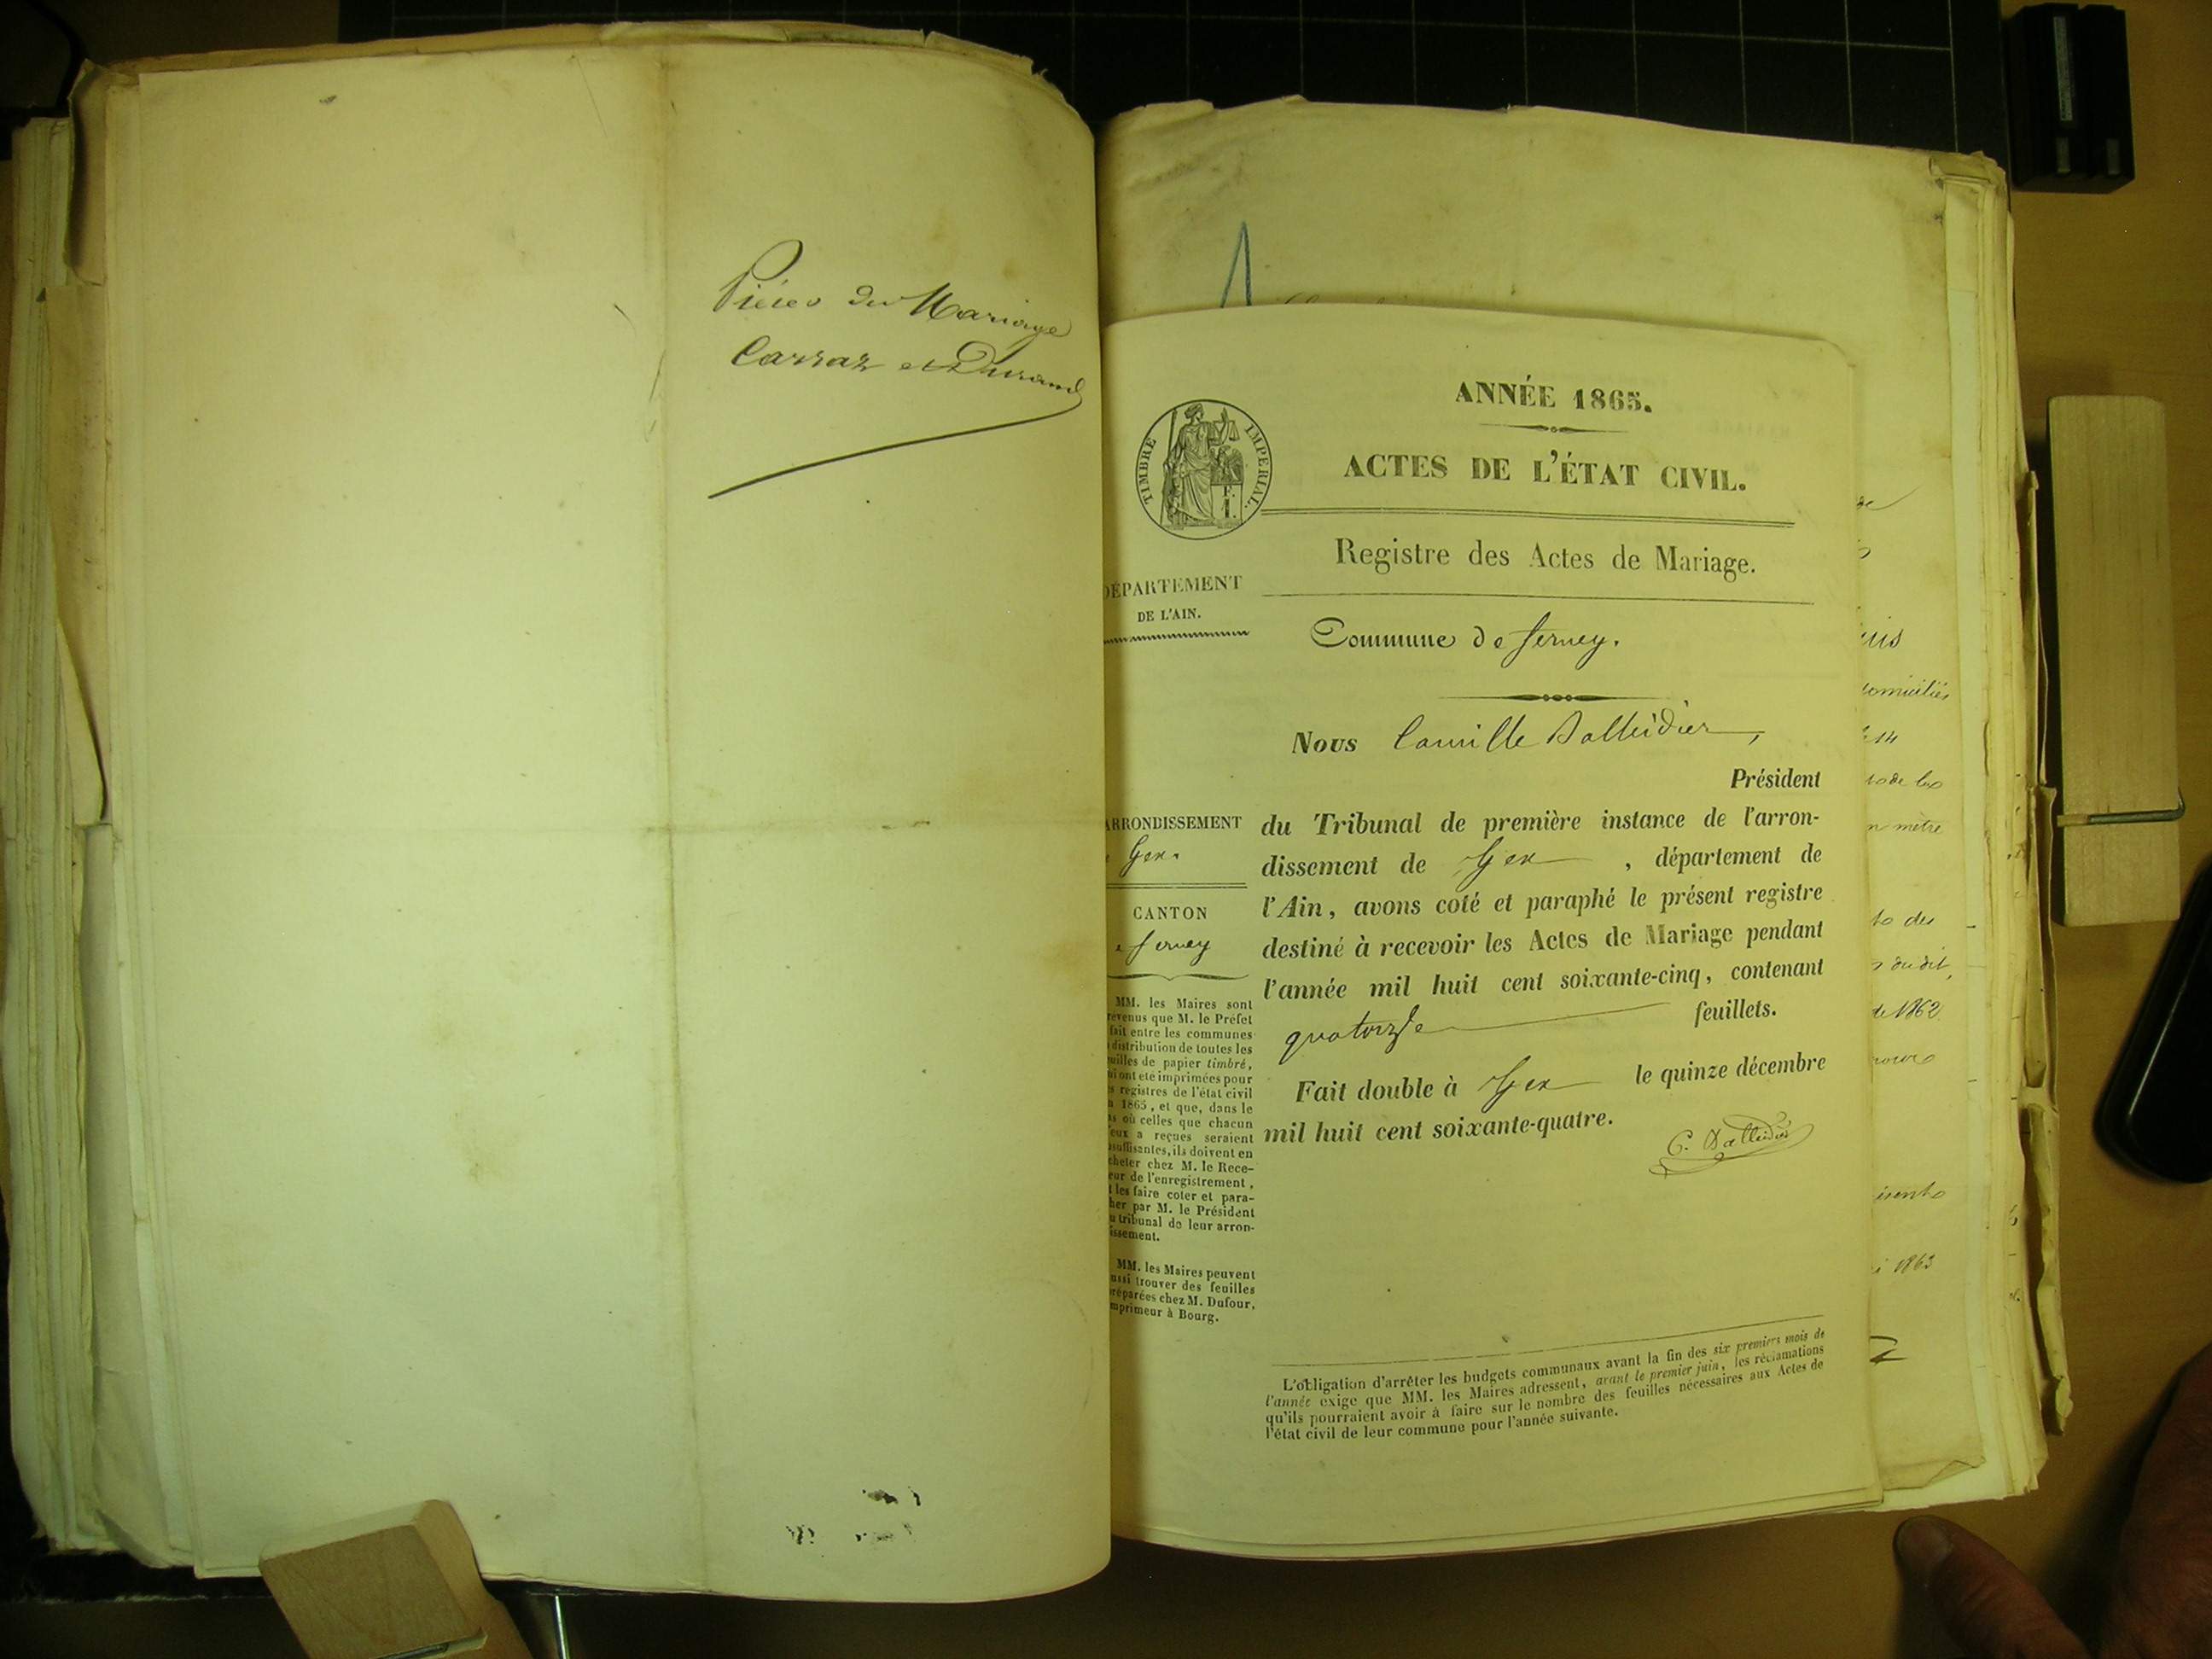 Pièces du Mariage
Carraz et Durand
ANNÉE 1865.
TIMBRE IMPERIAL.
ACTES DE L'ÉTAT CIVIL.
Registre des Actes de Mariage.
DÉPARTEMENT
DE L'AIN.
Commune de Ferney.
Nous Camille Balleidier,
Président
ARRONDISSEMENT
Gex.
CANTON
Ferney
du Tribunal de première instance de l'arron-
dissement de Gex, département de
l'Ain, avons coté et paraphé le présent registre
destiné à recevoir les Actes de Mariage pendant
l'année mil huit cent soixante-cinq, contenant
quatorze feuillets.
Fait double à Gex le quinze décembre
mil huit cent soixante-quatre.
C. Balleidier
MM. les Maires sont
revenus que M. le Préfet
fait entre les communes
distribution de toutes les
uilles de papier timbré,
ui ont été imprimées pour
s registres de l'état civil
n 1865, et que, dans le
as où celles que chacun
'eux a reçues seraient
nsuffisantes, ils doivent en
cheter chez M. le Rece-
eur de l'enregistrement,
t les faire coter et para-
her par M. le Président
u tribunal de leur arron-
issement.
MM. les Maires peuvent
ussi trouver des feuilles
réparées chez M. Dufour,
mprimeur à Bourg.
L'obligation d'arrêter les budgets communaux avant la fin des six premiers mois de
l'année exige que MM. les Maires adressent, avant le premier juin, les réclamations
qu'ils pourraient avoir à faire sur le nombre des feuilles nécessaires aux Actes de
l'état civil de leur commune pour l'année suivante.
de
domiciliés
14
n mètre
des
du dit,
de 1862
1863